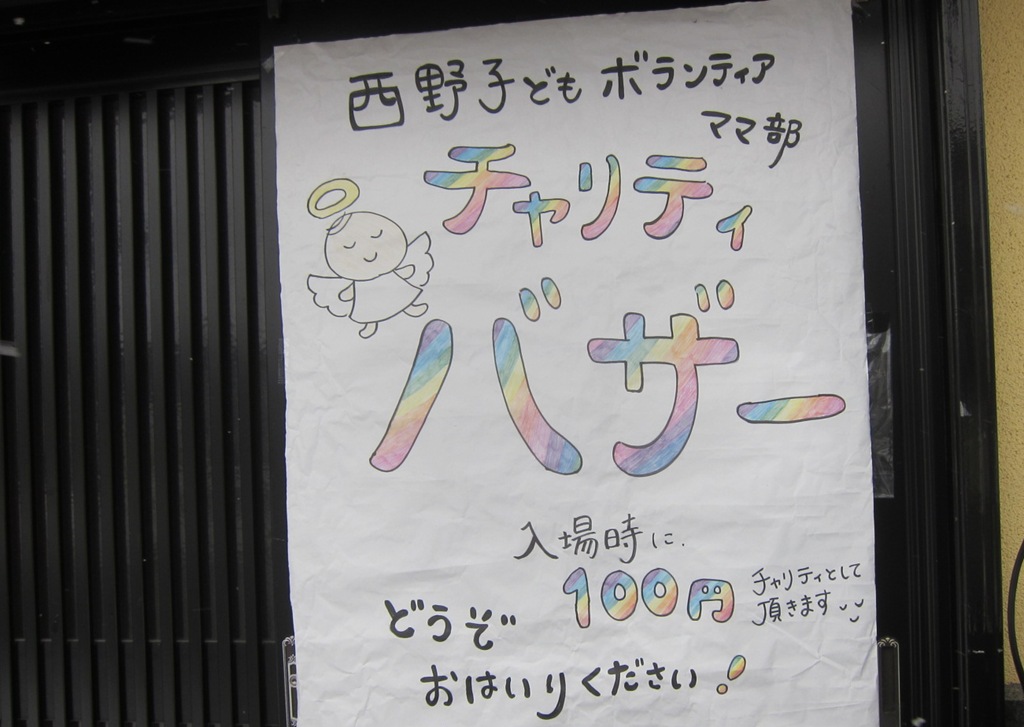 西野子どもボランティア
ママ部
チャリティ
バザー
入場時に、
100円
チャリティとして
頂きます
どうぞ
おはいりください!